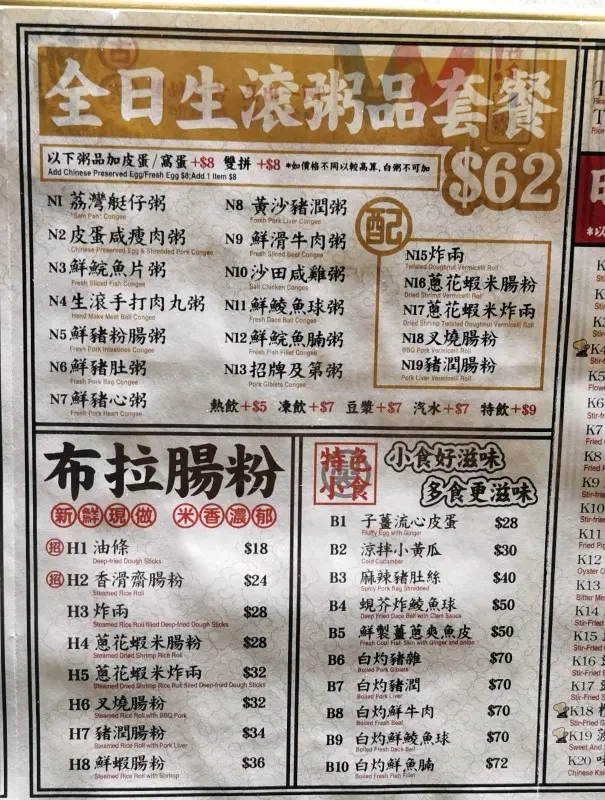 全日生滾粥品套餐
$62
以下粥品加皮蛋/窩蛋+$8 雙拼+$8 *如價格不同以較高算,白粥不可加
Add Chinese Preserved Egg/Fresh Egg $8;Add 1 Item $8
N1 荔灣艇仔粥
"Sam Pan" Congee
N2 皮蛋咸瘦肉粥
Chinese Preserved Egg & Shredded Pork Congee
N3 鮮鯇魚片粥
Fresh Sliced Fish Congee
N4 生滾手打肉丸粥
Hand Make Meat Ball Congee
N5 鮮豬粉腸粥
Fresh Pork Intestines Congee
N6 鮮豬肚粥
Fresh Pork Bag Congee
N7 鮮豬心粥
Fresh Pork Heart Congee
N8 黃沙豬潤粥
Fresh Pork Liver Congee
N9 鮮滑牛肉粥
Fresh Sliced Beef Congee
N10 沙田咸雞粥
Salt Chicken Congee
N11 鮮鯪魚球粥
Fresh Dace Ball Congee
N12 鮮鯇魚腩粥
Fresh Fish Fillet Congee
N13 招牌及第粥
Pork Giblets Congee
配
N15 炸兩
Twisted Doughnut Vermicelli Roll
N16 蔥花蝦米腸粉
Dried Shrimp Vermicelli Roll
N17 蔥花蝦米炸兩
Dried Shrimp Twisted Doughnut Vermicelli Roll
N18 叉燒腸粉
BBQ Pork Vermicelli Roll
N19 豬潤腸粉
Pork Liver Vermicelli Roll
熱飲+$5 凍飲+$7 豆漿+$7 汽水+$7 特飲+$9
布拉腸粉
新鮮現做 米香濃郁
招 H1 油條 $18
Deep-fried Dough Sticks
招 H2 香滑齋腸粉 $24
Steamed Rice Roll
H3 炸兩 $28
Steamed Rice Roll filled Deep-fried Dough Sticks
H4 蔥花蝦米腸粉 $28
Steamed Dried Shrimp Rice Roll
H5 蔥花蝦米炸兩 $32
Steamed Dried Shrimp Rice Roll filled Deep-fried Dough Sticks
H6 叉燒腸粉 $32
Steamed Rice Roll with BBQ Pork
H7 豬潤腸粉 $34
Steamed Rice Roll with Pork Liver
H8 鮮蝦腸粉 $36
Steamed Rice Roll with Shrimp
特色小食
小食好滋味
多食更滋味
B1 子薑流心皮蛋 $28
Fluffy Egg with Ginger
B2 涼拌小黃瓜 $30
Cold Cucumber
B3 麻辣豬肚絲 $40
Spicy Pork Bag Shredded
B4 蜆芥炸鯪魚球 $50
Deep Fried Dace Ball with Clam Sauce
B5 鮮製薑蔥爽魚皮 $50
Fresh Cool Fish Skin with Ginger and Onion
B6 白灼豬雜 $70
Boiled Pork Giblets
B7 白灼豬潤 $70
Boiled Pork Liver
B8 白灼鮮牛肉 $70
Boiled Fresh Beef
B9 白灼鮮鯪魚球 $70
Boiled Fresh Dace Ball
B10 白灼鮮魚腩 $72
Boiled Fresh Fish Fillet
K5
K6
K7
K8
K9
K10
K11
K12
K13
K14
K15
K16
K17
K18
K19
K20